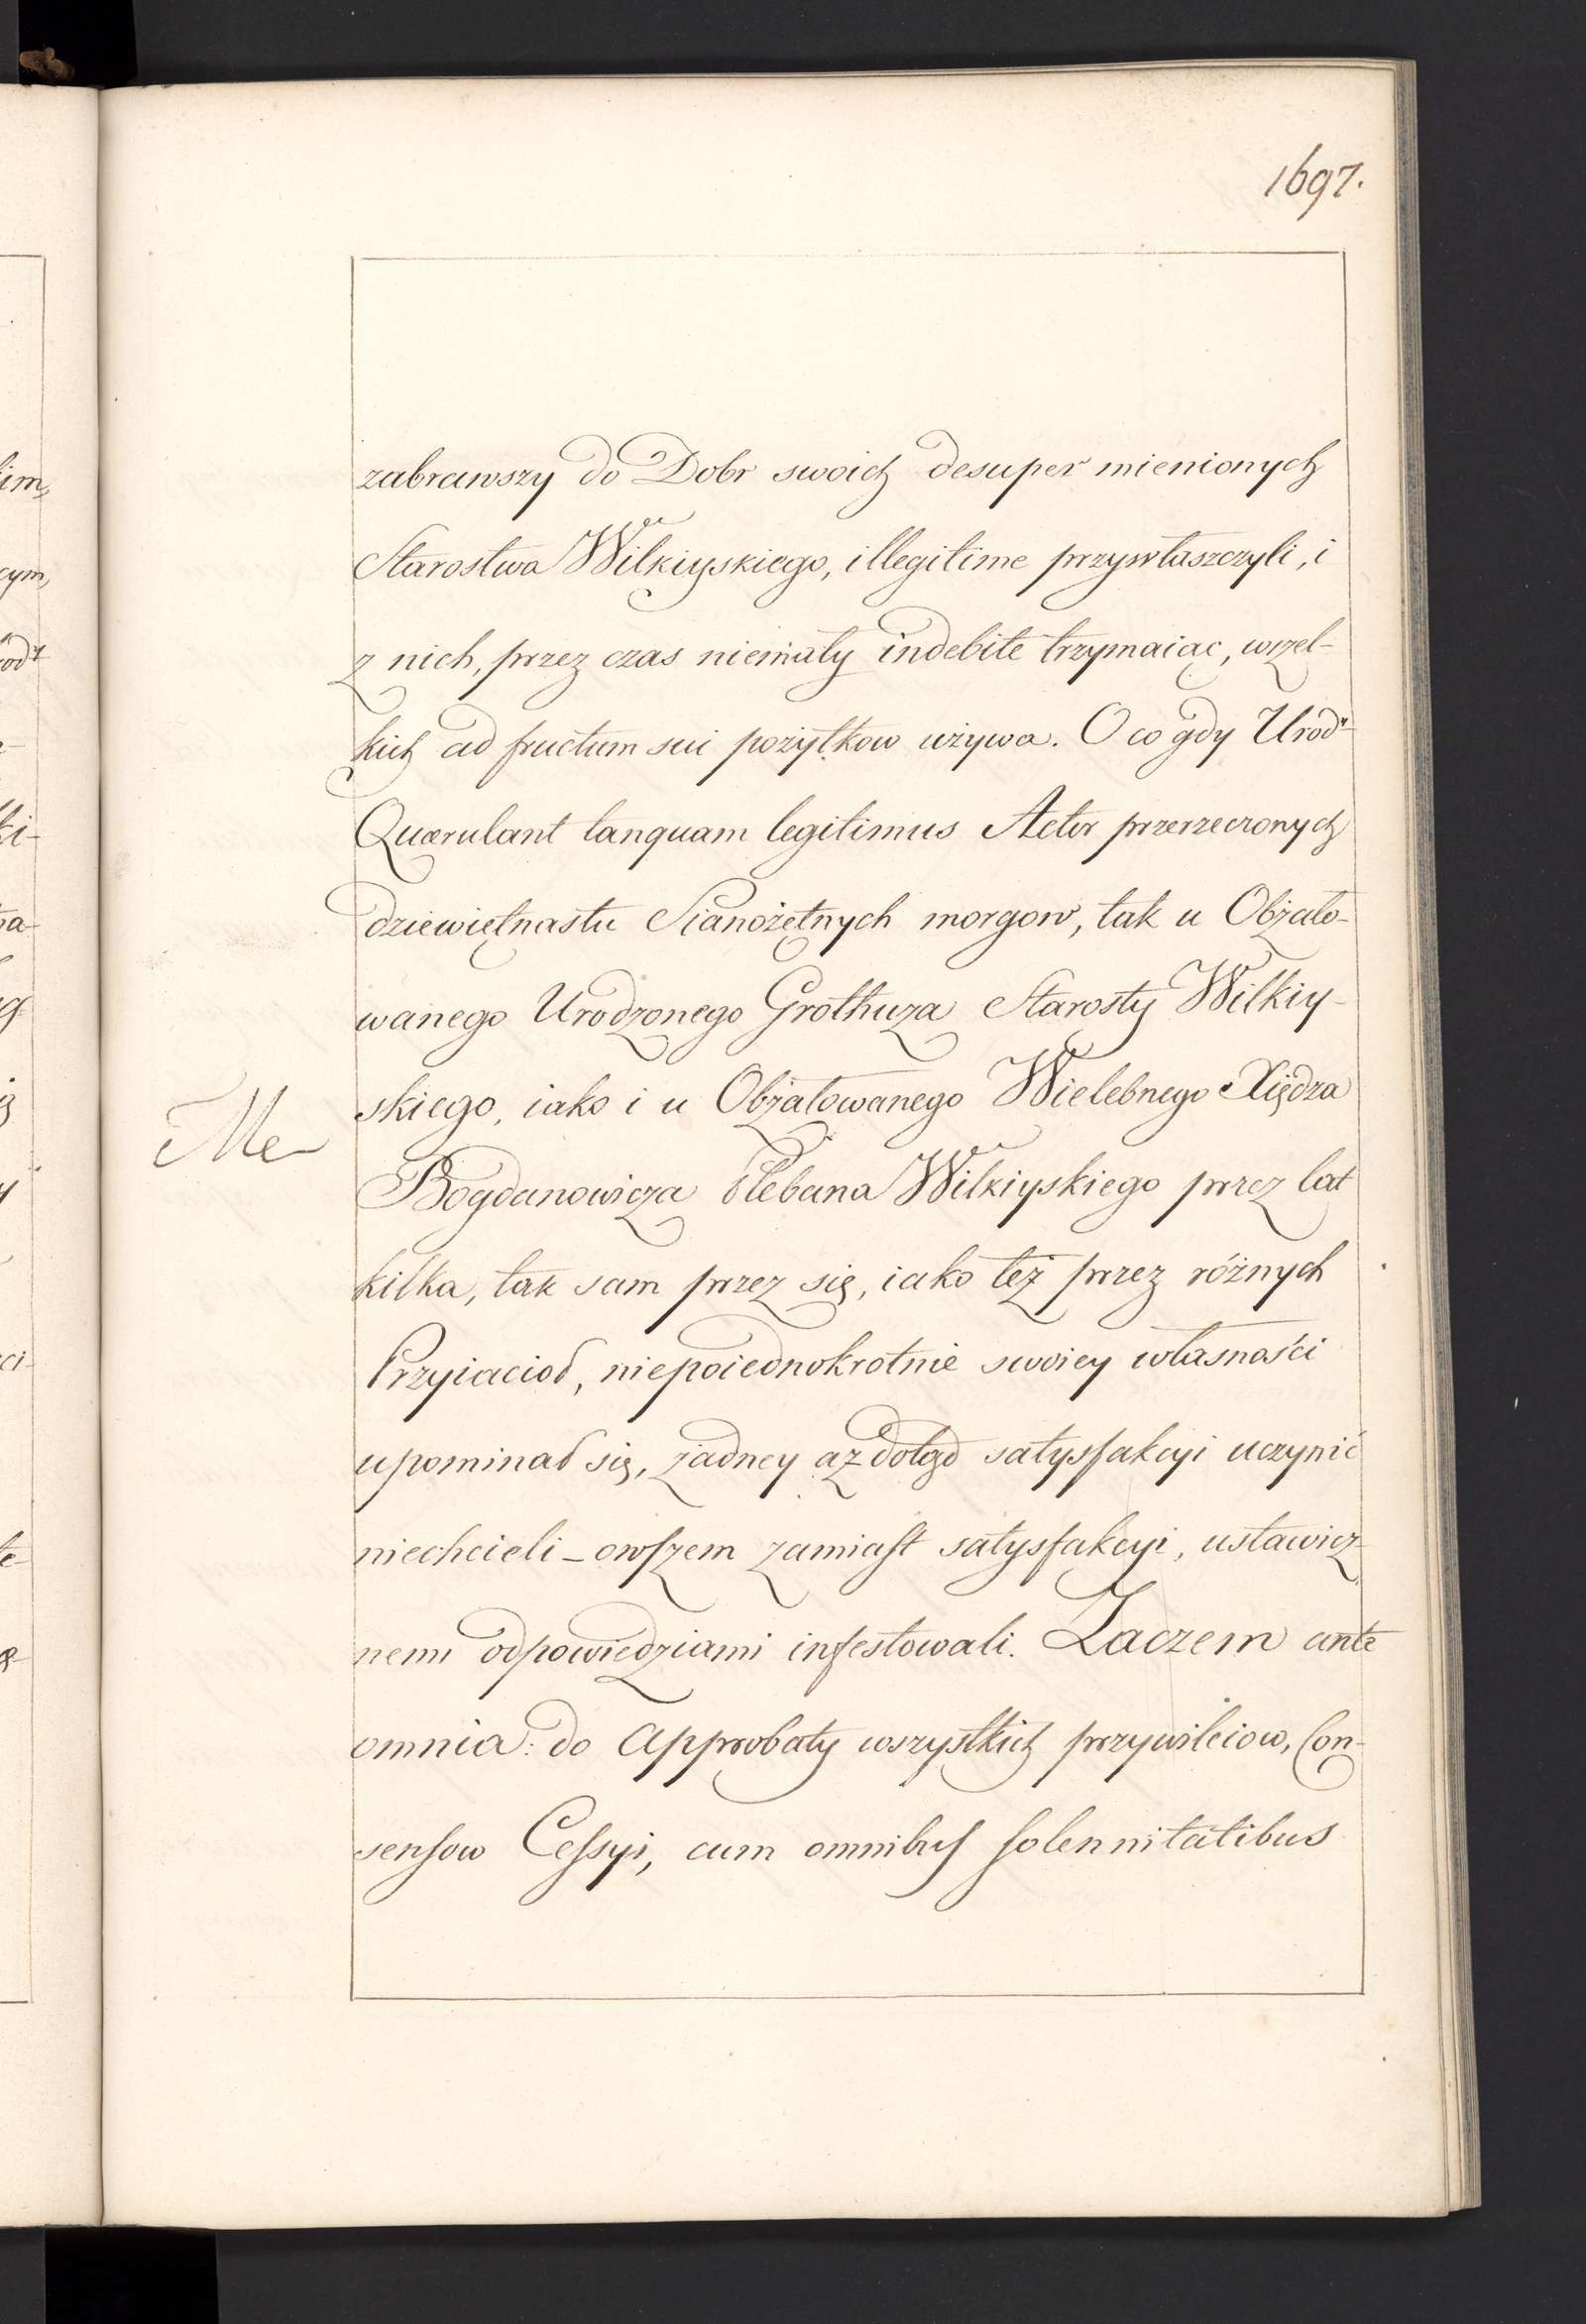 1697.
zabrawszy do Dobr swoich desuper mienionych
Starostwa Wilkiyskiego, illegitime przywłaszczyli, i
z nich, przez czas niemały indebite trzymaiąc, wszel-
kich ad fructum sui pożytkow używa. O co gdy Urodᵘ
Quærulant tanquam legitimus Actor przerzeczonych
dziewiętnastu Sianożętnych morgow, tak u Obżało-
wanego Urodzonego Grothuza Starosty Wilkiy-
skiego, iako i u Obżałowanego Wielebnego Xiędza
Me
Bogdanowicza Plebana Wilkiyskiego przez lat
kilka, tak sam przez się, iako też przez różnych
Przyiacioł, niepoiednokrotnie swoiey własności
upominał się, żadney aż dotąd satysfakcyi uczynić
niechcieli – owszem zamiast satysfakcyi, ustawicz-
nemi odpowiedziami infestowali. Zaczem ante
omnia: do Approbaty wszystkich przywileiow, Con-
sensow Cessyi, cum omnibus solennitatibus